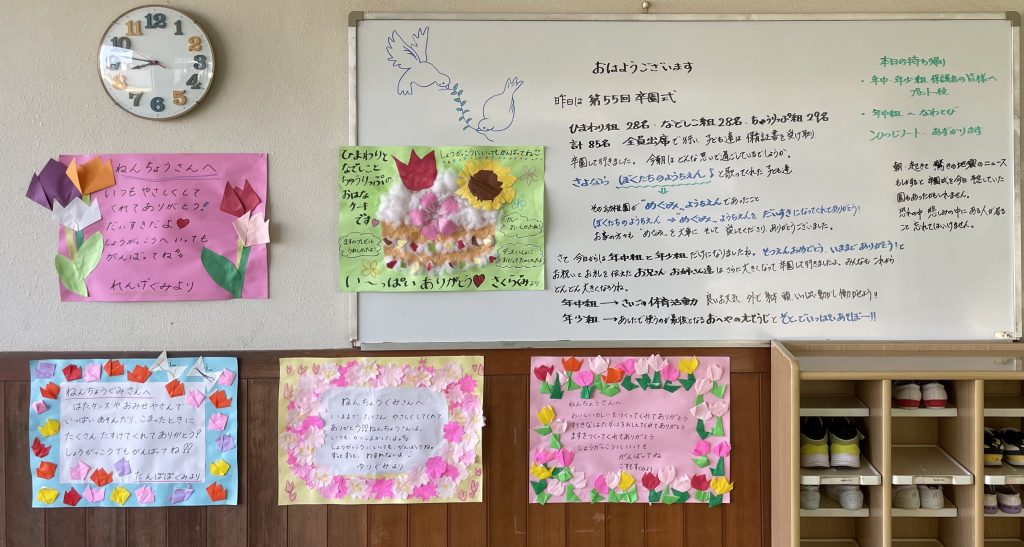 12
1
2
3
4
5
6
7
8
9
10
11
ねんちょうさんへ
いつもやさしくして
くれてありがとう!
だいすきだよ♥
しょうがっこうへいっても
がんばってね
れんげぐみより
しょうがっこうにいってもがんばってね
ひまわりと
なでしこと
ちゅうりっぷの
おはな
ケーキ
です
い〜っぱい ありがとう♥ さくらぐみより
おはようございます
昨日は 第55回 卒園式
ひまわり組 28名・なでしこ組 28名・ちゅうりっぷ組 29名
計 85名 全員出席で行い 子ども達は 保育証書を受け取り
卒園して行きました。今朝はどんな思いで過ごしているでしょうか。
さよなら ぼくたちのようちえん♪ と歌ってくれた子ども達
その幼稚園が "めぐみ"ようちえんであったこと
ぼくたちのようちえん → "めぐみ"ようちえんを だいすきになってくれてありがとう!
お家の方々も "めぐみ"を大事に そして 愛してくださり ありがとうございました。
さて 今日からは 年中組と年少組だけになりましたね。そつえんおめでとう いままでありがとう!と
お祝いとお礼を伝えた お兄さん お姉さん達は さらに大きくなって卒園して行きましたよ。みんなも これから
どんどん大きくなろうね。
年中組 → さいごの体育活動 良いお天気 外で 身体 頭 いっぱい動かし 働かせよう!!
年少組 → あしたで使うのが最後となる おへやの大そうじと そとでいっぱいあそぼー!!
本日の持ち帰り
・年中・年少組 保護者の皆様へ
プリント一枚
・年中組 〜 なわとび
ひつじノート あずかります
朝、起きて 驚きの地震のニュース
もしかすると 卒園式を今日 予定していた
園もあったかもしれません。
恐れの中 悲しみの中にある人が居る
こと 忘れてはいけません。
ねんちょうぐみさんへ
はたダンスや おみせやさんで
いっぱい あそんだり、こまったときに
たくさん たすけてくれてありがとう!
しょうがっこうでもがんばってね!!
たんぽぽぐみより
ねんちょうぐみさんへ
いままで たくさん やさしくしてくれて
ありがとう!!ねんちょうさんは、
いつも かっこよかったよ。
しょうがっこうにいっても、がんばってね。
ずっとずっと、わすれないよ
ゆりぐみより
ねんちょうぐみさんへ
おいしいカレーをつくってくれてありがとう
すてきなはたダンスをおしえてくれてありがとう
ますをつくってくれてありがとう
しょうがっこうにいっても
がんばってね
こすもすぐみより